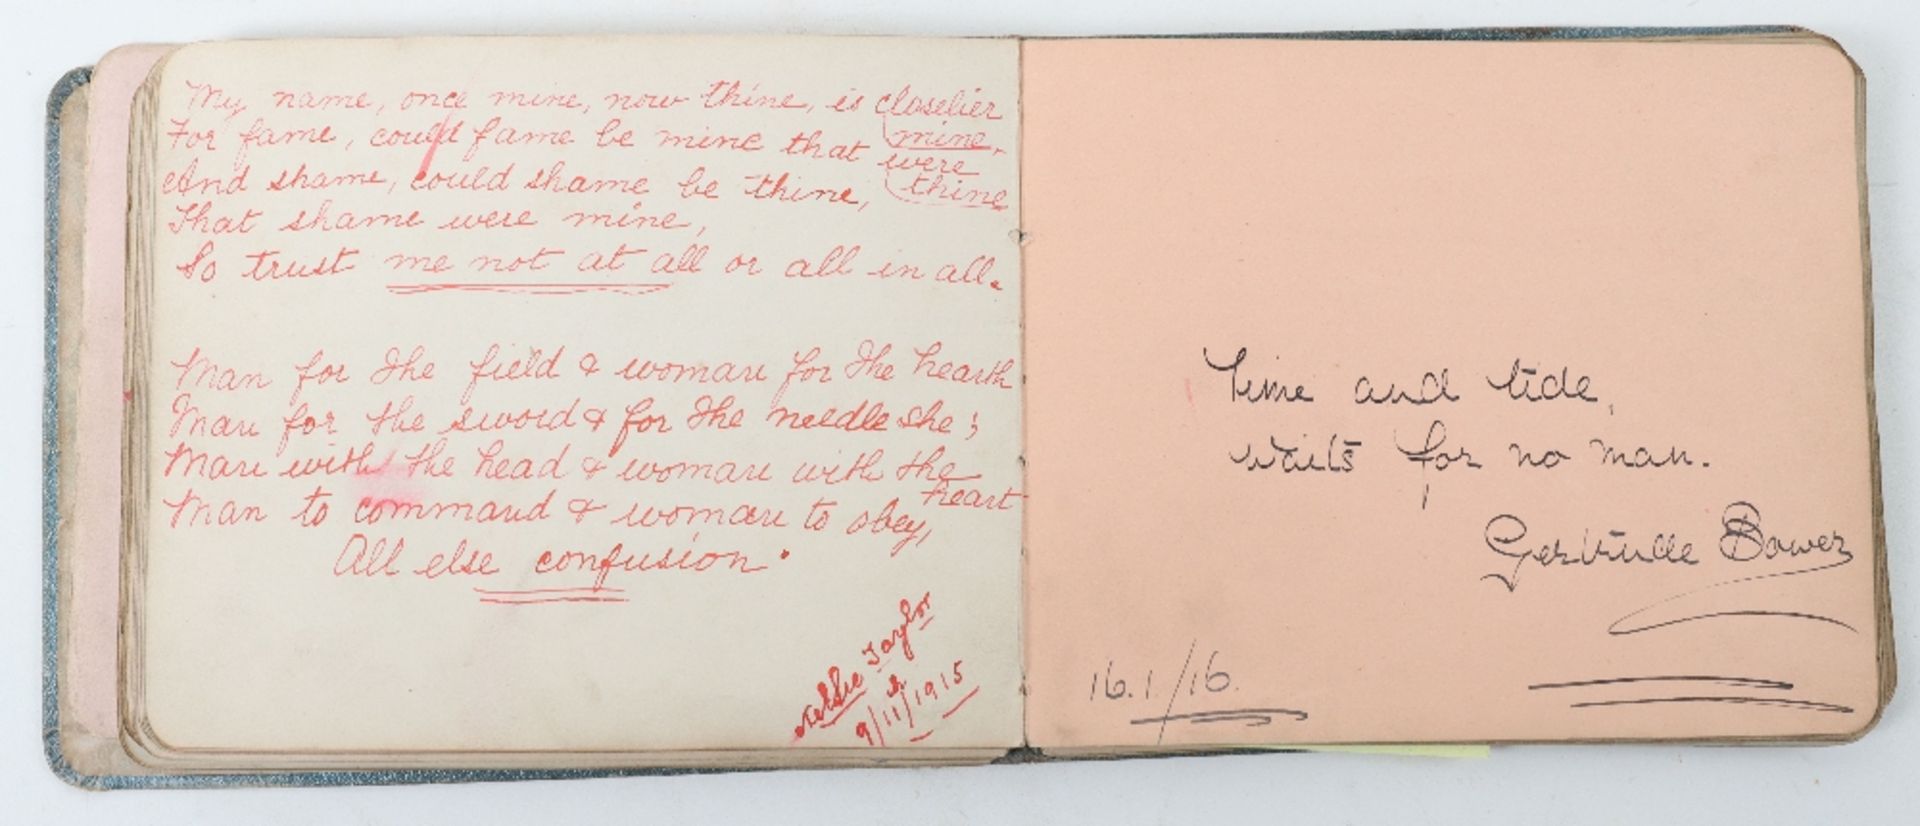 My name, once mine, now thine, is closelier
mine,
For fame, could fame be mine that were
thine
And shame, could shame be thine,
That shame were mine,
So trust me not at all or all in all.
Man for the field & woman for the hearth
Man for the sword & for the needle she;
Man with the head & woman with the
heart
Man to command & woman to obey,
All else confusion.
Nellie Taylor
9/11/1915
Time and tide,
waits for no man.
Gertrude Bower
16.1/16.